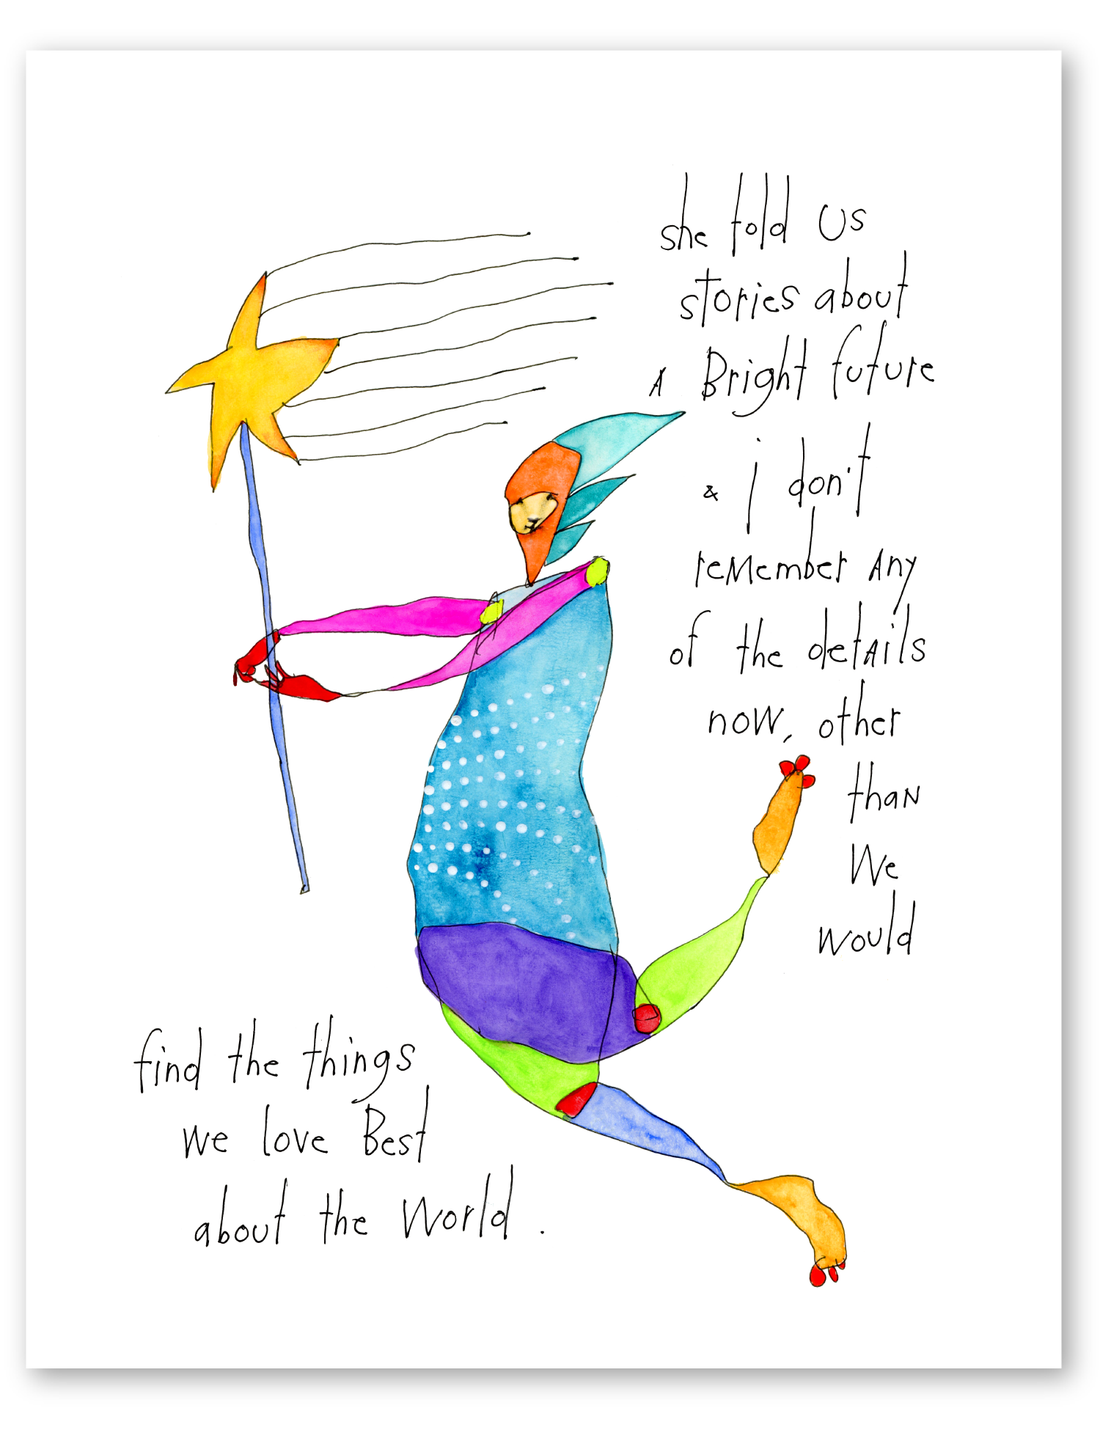 she told us
stories about
A Bright future
& i don't
reMember Any
of the detAils
now, other
thaN
We
would
find the things
we love Best
about the World.